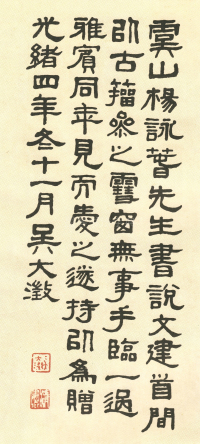 虛山楊詠春先生書說文建首間
以古籀參之雪窗無事手臨一過
雅賓同年見而愛之遂持以為贈
光緒四年冬十一月吳大澂